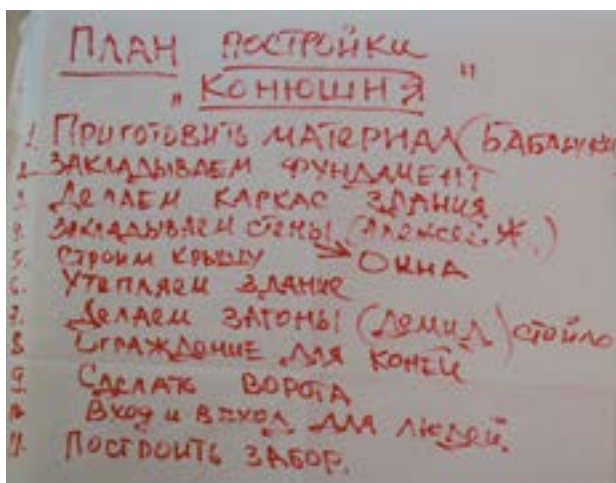 ПЛАН ПОСТРОЙКИ
„КОНЮШНЯ"
1. ПРИГОТОВИТЬ МАТЕРИАЛ (
2. ЗАКЛАДЫВАЕМ ФУНДАМЕНТ
3. ДЕЛАЕМ КАРКАС ЗДАНИЯ
4. ЗАКЛАДЫВАЕМ СТЕНЫ (АЛЕКСЕЙ Ж.)
5. СТРОИМ КРЫШУ → ОКНА
6. УТЕПЛЯЕМ ЗДАНИЕ
7. ДЕЛАЕМ ЗАГОНЫ (ДЕМИД) СТОЙЛО
8 ОГРАЖДЕНИЕ ДЛЯ КОНЕЙ
9. СДЕЛАТЬ ВОРОТА
10. ВХОД И ВЫХОД ДЛЯ ЛЮДЕЙ.
11. ПОСТРОИТЬ ЗАБОР.